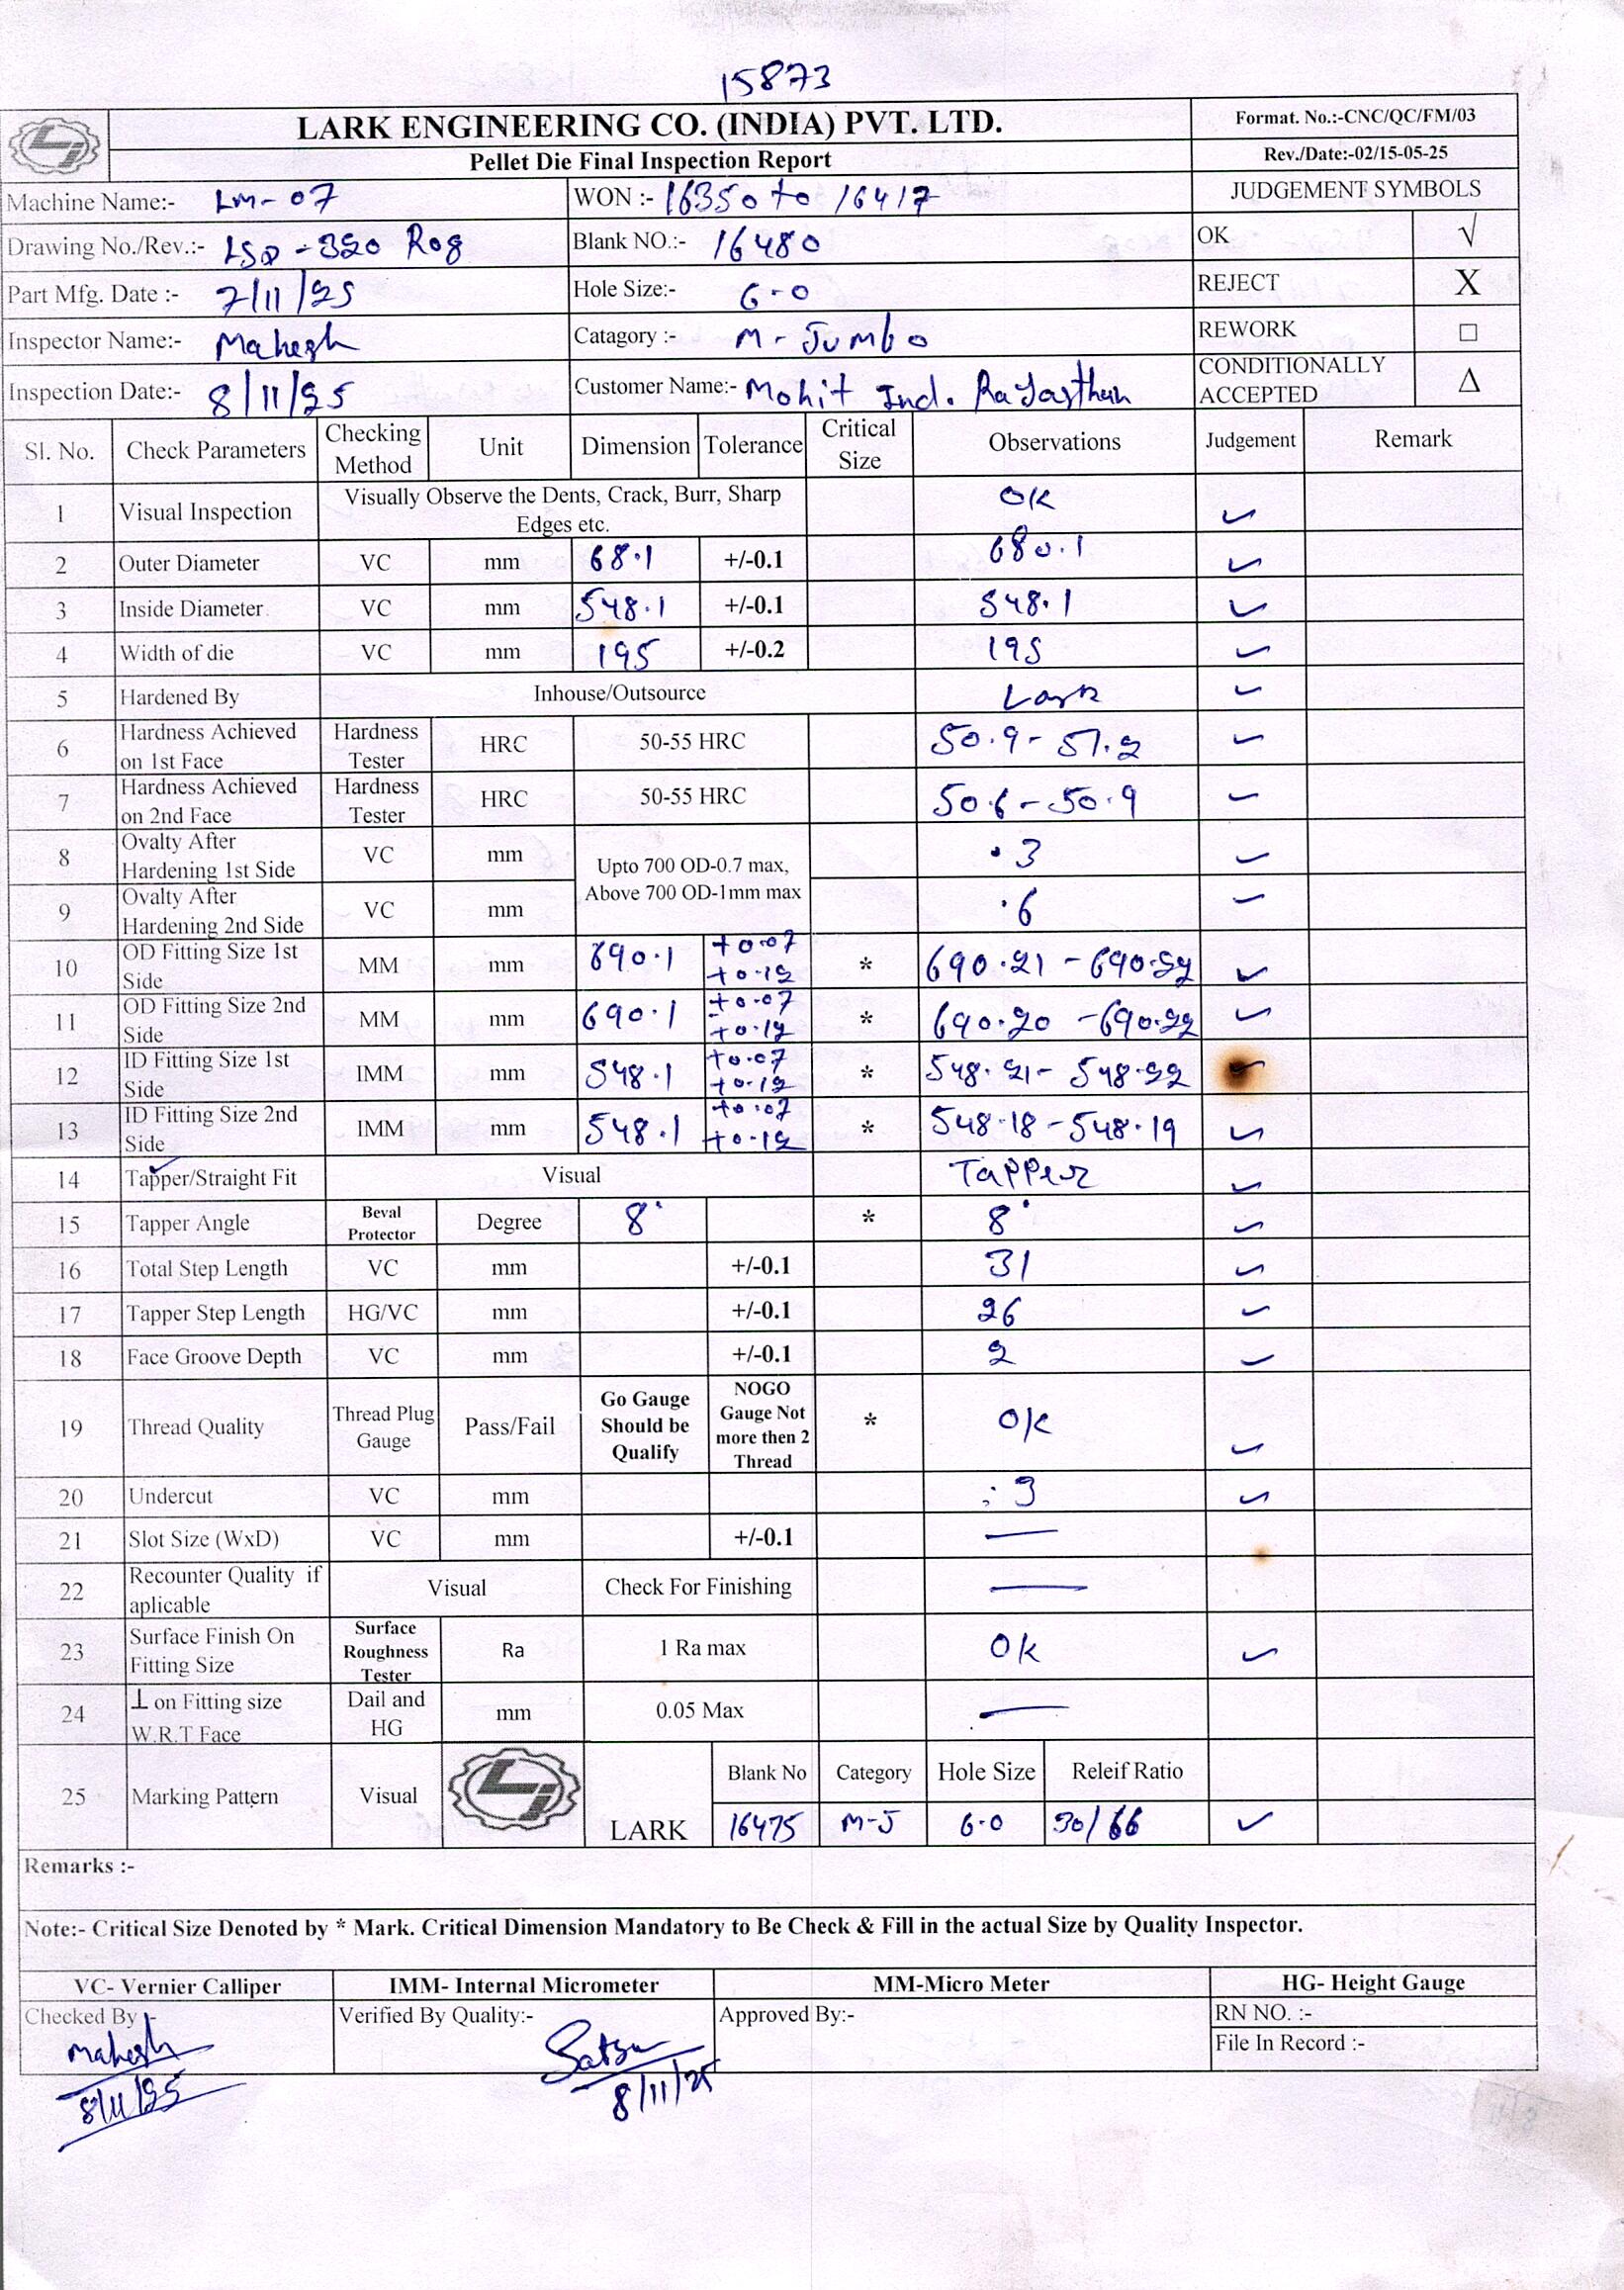 15873
LARK ENGINEERING CO. (INDIA) PVT. LTD.
Format. No.:-CNC/QC/FM/03
Pellet Die Final Inspection Report
Rev./Date:-02/15-05-25
Machine Name:- LM-07 WON :- 16350 to 16417 JUDGEMENT SYMBOLS
Drawing No./Rev.:- Blank NO.:- 16480 OK √
Part Mfg. Date :- 7/11/25 Hole Size:- 6.0 REJECT X
Inspector Name:- Mahesh Catagory :- M-Jumbo REWORK □
Inspection Date:- 8/11/25 Customer Name:- Mohit Ind. Rajasthan CONDITIONALLY ACCEPTED Δ
Sl. No. Check Parameters Checking Method Unit Dimension Tolerance Critical Size Observations Judgement Remark
1 Visual Inspection Visually Observe the Dents, Crack, Burr, Sharp Edges etc. OK ✓
2 Outer Diameter VC mm 68.1 +/-0.1 680.1 ✓
3 Inside Diameter VC mm 548.1 +/-0.1 548.1 ✓
4 Width of die VC mm 195 +/-0.2 195 ✓
5 Hardened By Inhouse/Outsource Lark ✓
6 Hardness Achieved on 1st Face Hardness Tester HRC 50-55 HRC 50.9 - 51.2 ✓
7 Hardness Achieved on 2nd Face Hardness Tester HRC 50-55 HRC 50.6 - 50.9 ✓
8 Ovalty After Hardening 1st Side VC mm Upto 700 OD-0.7 max, Above 700 OD-1mm max .3 ✓
9 Ovalty After Hardening 2nd Side VC mm .6 ✓
10 OD Fitting Size 1st Side MM mm 690.1 +0.07 +0.12 * 690.21 - 690.22 ✓
11 OD Fitting Size 2nd Side MM mm 690.1 +0.07 +0.12 * 690.20 - 690.22 ✓
12 ID Fitting Size 1st Side IMM mm 548.1 +0.07 +0.12 * 548.21 - 548.22 ✓
13 ID Fitting Size 2nd Side IMM mm 548.1 +0.07 +0.12 * 548.18 - 548.19 ✓
14 Tapper/Straight Fit Visual Tapper ✓
15 Tapper Angle Beval Protector Degree 8° * 8° ✓
16 Total Step Length VC mm +/-0.1 31 ✓
17 Tapper Step Length HG/VC mm +/-0.1 26 ✓
18 Face Groove Depth VC mm +/-0.1 2 ✓
19 Thread Quality Thread Plug Gauge Pass/Fail Go Gauge Should be Qualify NOGO Gauge Not more then 2 Thread * OK ✓
20 Undercut VC mm ✓
21 Slot Size (WxD) VC mm +/-0.1 —
22 Recounter Quality if aplicable Visual Check For Finishing —
23 Surface Finish On Fitting Size Surface Roughness Tester Ra 1 Ra max OK ✓
24 ⊥ on Fitting size W.R.T Face Dail and HG mm 0.05 Max —
25 Marking Pattern Visual LARK Blank No Category Hole Size Releif Ratio
16475 M-J 6.0 ✓
Remarks :-
Note:- Critical Size Denoted by * Mark. Critical Dimension Mandatory to Be Check & Fill in the actual Size by Quality Inspector.
VC- Vernier Calliper IMM- Internal Micrometer MM-Micro Meter HG- Height Gauge
Checked By :- Verified By Quality:- Approved By:- RN NO. :-
File In Record :-
Mahesh
8/11/25 8/11/25